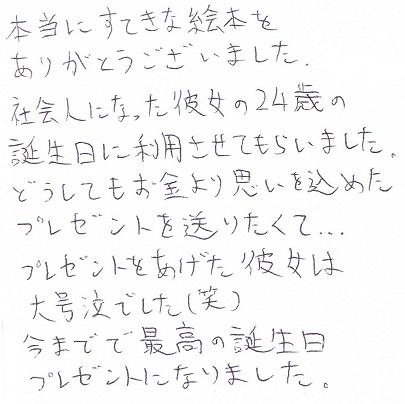 本当にすてきな絵本を
ありがとうございました.
社会人になった彼女の24歳の
誕生日に利用させてもらいました。
どうしてもお金より思いを込めた
プレゼントを送りたくて...
プレゼントをあげた彼女は
大号泣でした(笑)
今までで最高の誕生日
プレゼントになりました。